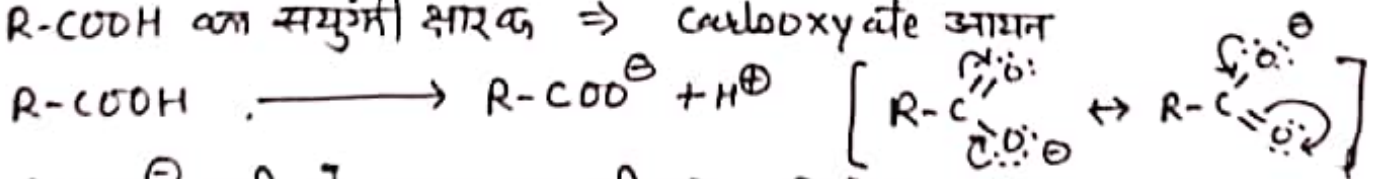 R-COOH का सयुंग्मी क्षारक ⇒ Carbooxyate आयन
R-COOH → R-COO⊖ + H⊕ [R-C Ö: Ö: ⊖ ↔ R-C Ö: ⊖ Ö:]